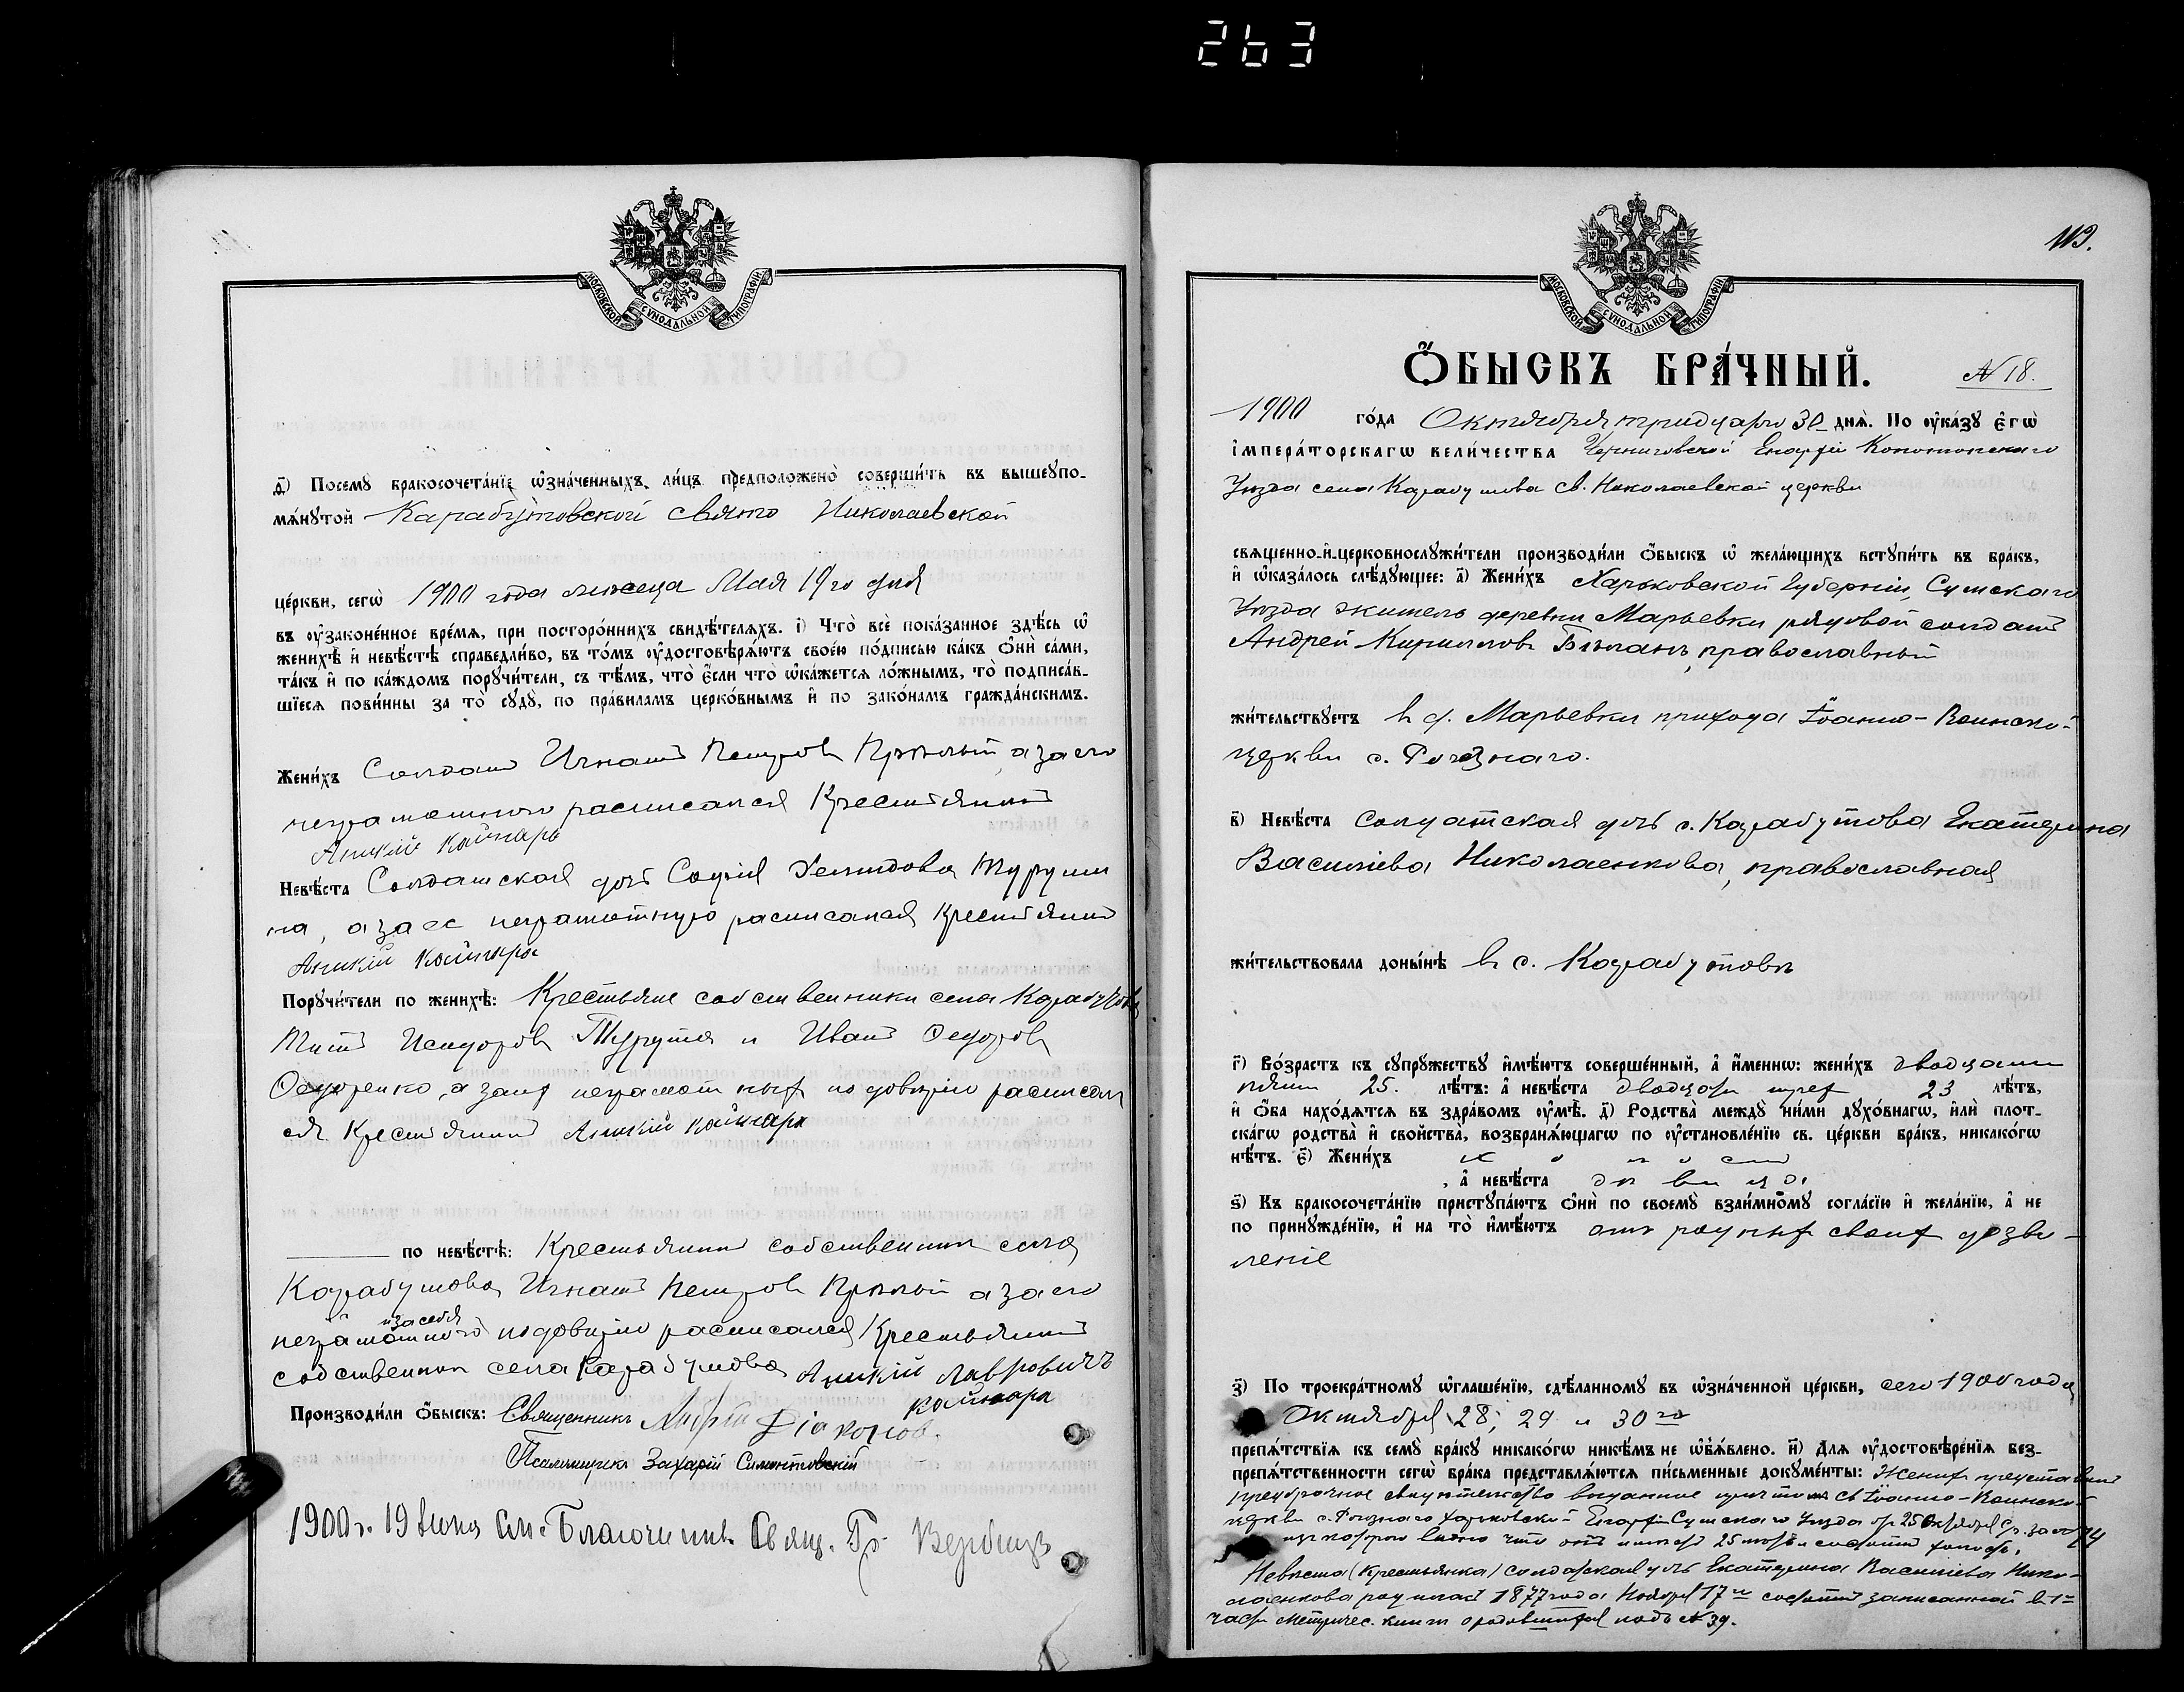 263
МОСКОВСКОЙ СѴНОДАЛЬНОЙ ТИПОГРАФІИ
д҃) Посемꙋ бракосочета́нїе ѡ҆зна́ченныхъ ли́цъ предположено̀ соверши́ть въ вышеꙋпо-
мѧ́нꙋтой Карабутовской Свято Николаевской
це́ркви, сегѡ̀ 1900 года месеца Мая 19го дня
въ ᲂу҆законе́нное вре́мѧ, при посторо́ннихъ свидѣ́телѧхъ. і҃) Что̀ всѐ пока́занное здѣ́сь ѡ҆
женихѣ̀ и҆ невѣ́стѣ справедли́во, въ то́мъ ᲂу҆достовѣрѧ́ютъ свое́ю по́дписью ка́къ ѻ҆нѝ са́ми,
та́къ и҆ по ка́ждомъ порꙋчи́тели, съ тѣ́мъ, что̀ є҆́сли что̀ ѡ҆ка́жетсѧ ло́жнымъ, то̀ подписа́в-
шїесѧ пови́нны за то̀ сꙋдꙋ̀, по пра́виламъ церко́внымъ и҆ по зако́намъ гражда́нскимъ.
Жени́хъ Солдат Игнат Петров а за его
неграмотного расписался Крестянин
Аникій Кайнара
Невѣ́ста Солдатская дочь Софія Турути
на, а за ее неграмотную расписался Крестянин
Аникій Кайнара
Порꙋчи́тели по женихѣ̀: Крестьяне собственники села Карабутова
Тит Исидоров Турутя и Иван Федоров
Федоренко, а за них неграмотных по довѣрію расписал
ся Крестянин Аникій Кайнара
по невѣ́стѣ: Крестьянин собственник села
Карабутова Игнат Петров а за его
и за себя
неграмотного по довѣрію расписался Крестьянин
собственник села Карабутова Аникій Лавровичъ
Кайнара
Производи́ли ѻ҆́быскъ: Священникъ Діаконов.
Псаломщикъ Захарій Симонтовскій
1900 г. 19 См. Благочинн. Свящ. Гр. Вербицк
113.
МОСКОВСКОЙ СѴНОДАЛЬНОЙ ТИПОГРАФІИ
Ѻ҆́БЫСКЪ БРА́ЧНЫЙ. № 18.
1900 го́да Октября 30 днѧ̀. По ᲂу҆ка́зꙋ є҆гѡ̀
і҆мпера́торскагѡ вели́чества Черниговской Епархіи Конотопскаго
Уѣзда села Карабутова св. Николаевской церкви
свѧщенно-и҆-церковнослꙋжи́тели производи́ли ѻ҆́быскъ ѡ҆ жела́ющихъ встꙋпи́ть въ бра́къ,
и҆ ѡ҆каза́лось слѣ́дꙋющее: а҃) Жени́хъ Харьковской Губерніи, Сумскаго
Уѣзда житель деревни Марьевки рядовой солдат
Андрей Кириллов Бѣлан, православный
жи́тельствꙋетъ въ д. Марьевки прихода Іоанно-Воинской
церкви с. Рогознаго.
в҃) Невѣ́ста Солдатская дочь с. Карабутова Екатерина
Василіева Николаенкова, православная
жи́тельствовала доны́нѣ въ с. Карабутовѣ
г҃) Во́зрастъ къ сꙋпрꙋжествꙋ и҆мѣ́ютъ соверше́нный, а҆ и҆́меннѡ: жени́хъ двадцати
пяти 25. лѣ́тъ: а҆ невѣ́ста двадцати трех 23 лѣ́тъ,
и҆ ѻ҆́ба нахо́дѧтсѧ въ здра́вомъ ᲂу҆мѣ̀. д҃) Родства̀ междꙋ̀ ни́ми дꙋхо́внагѡ, и҆лѝ плот-
ска́гѡ родства̀ и҆ свойства̀, возбранѧ́ющагѡ по ᲂу҆становле́нїю св. це́ркви бра́къ, никако́гѡ
нѣ́тъ. є҃) Жени́хъ холост
, а҆ невѣ́ста дѣвица
ѕ҃) Къ бракосочета́нїю пристꙋпа́ютъ ѻ҆нѝ по своемꙋ̀ взаи́мномꙋ согла́сїю и҆ жела́нїю, а҆ не
по принꙋжде́нїю, и҆ на то̀ и҆мѣ́ютъ от родных своих дозво-
леніе
з҃) По троекра́тномꙋ ѡ҆глаше́нїю, сдѣ́ланномꙋ въ ѡ҆зна́ченной це́ркви, сего 1900 года
Октября 28, 29 и 30го
препѧ́тствїѧ къ семꙋ̀ бра́кꙋ никако́гѡ никѣ́мъ не ѡ҆б̾ѧ́влено. и҃) Длѧ ᲂу҆достовѣре́нїѧ без-
препѧ́тственности сегѡ̀ бра́ка представлѧ́ютсѧ пи́сьменные докꙋме́нты: Жених представил
предбрачное свидѣтельство выданное причтом св Іоанно-Воинской
церкви с. Рогознаго Харьковской Епархіи Сумскаго Уѣзда от 25 Октября с/г. за № 74
из котораго видно что он имеет 25 лѣт и состоит холост.
Невѣста (крестьянка) солдатская дочь Екатерина Василіева Нико-
лаенкова родилась 1877 года Ноября 17го состоит записанной в 1й
части Метричес. книги о родившихся подъ № 39.